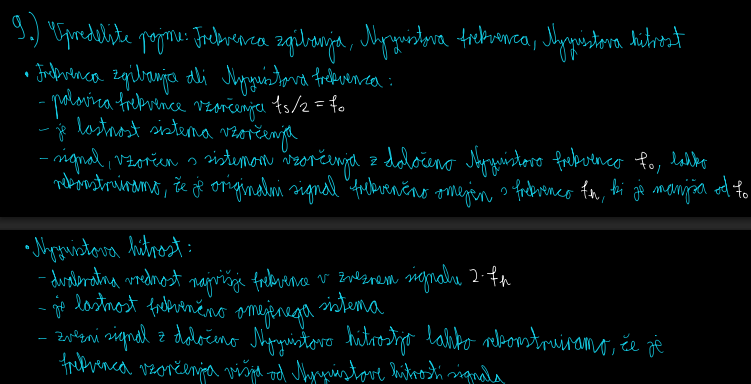 9.) Opredelite pojme: Frekvenca zgibanja, Nyquistova frekvenca, Nyquistova hitrost
• Frekvenca zgibanja ali Nyquistova frekvenca:
- polovica frekvence vzorčenja fs/2 = fo
- je lastnost sistema vzorčenja
- signal, vzorčen s sistemom vzorčenja z določeno Nyquistovo frekvenco fo, lahko
rekonstruiramo, če je originalni signal frekvenčno omejen s frekvenco fh, ki je manjša od fo
• Nyquistova hitrost:
- dvakratna vrednost najvišje frekvence v zveznem signalu 2·fh
- je lastnost frekvenčno omejenega sistema
- zvezni signal z določeno Nyquistovo hitrostjo lahko rekonstruiramo, če je
frekvenca vzorčenja višja od Nyquistove hitrosti signala